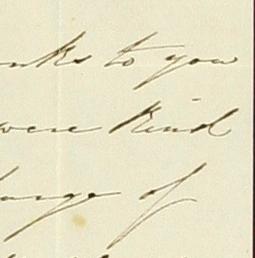 nks to you
were kind
harge of